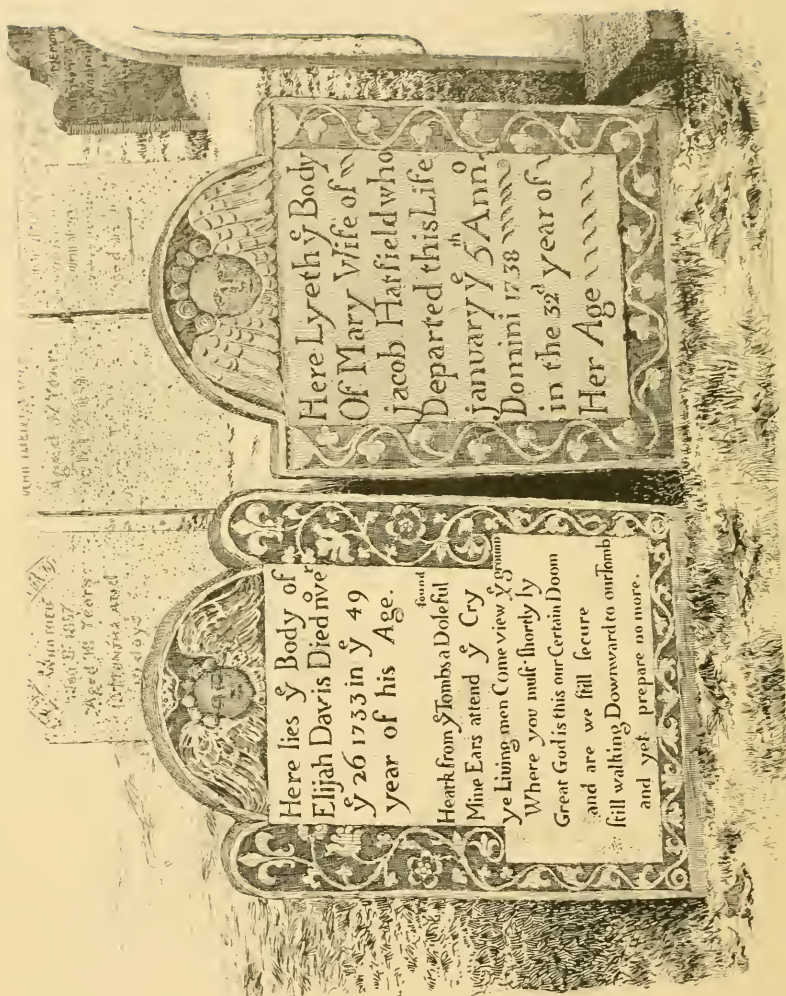 Who died
Aged
Years
days
Here lies yͤ Body of
Elijah Davis Died nveʳ
yͤ 26 1733 in yͤ 49
year of his Age.
found
Heark from yͤ Tombs a Doleful
Mine Ears attend yͤ Cry
ye Living men Come view yͤ ground
Where you muſt ſhortly ly
Great God is this our Certain Doom
and are we ſtill ſecure
ſtill walking Downward to our Tomb
and yet prepare no more.
Here Lyeth yͤ Body
Of Mary Wife of
Jacob Hatfield who
Departed this Life
January yͤ 5ᵗʰ Annᵒ
Domini 1738
in the 32ᵈ year of
Her Age